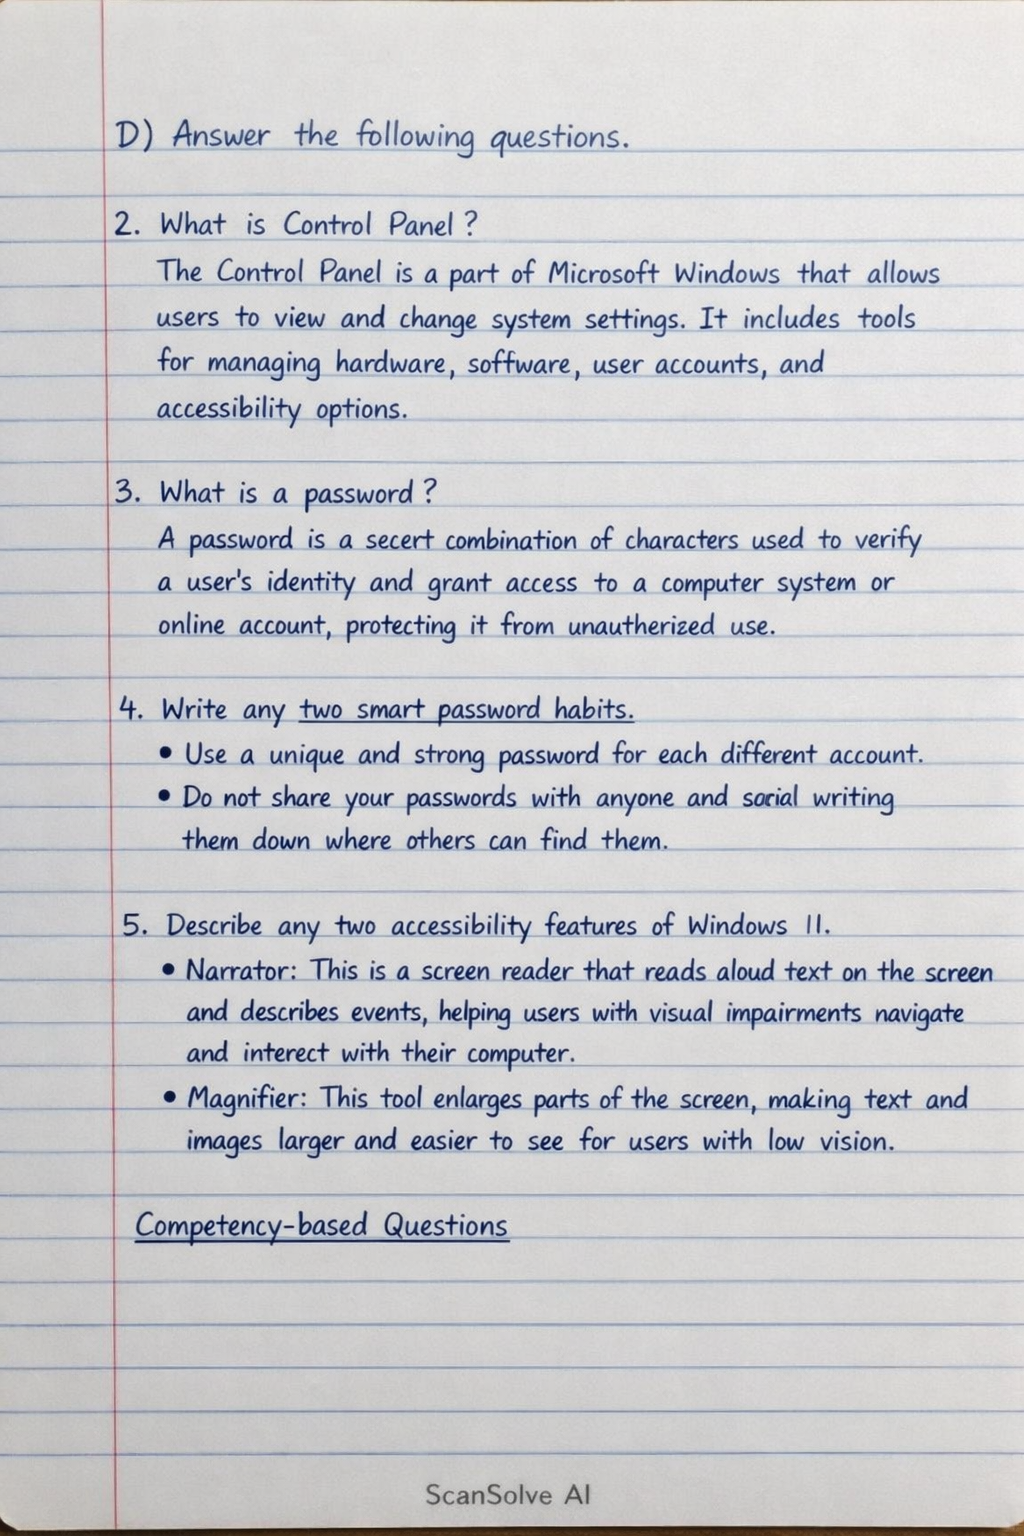 D) Answer the following questions.
2. What is Control Panel?
The Control Panel is a part of Microsoft Windows that allows
users to view and change system settings. It includes tools
for managing hardware, software, user accounts, and
accessibility options.
3. What is a password?
A password is a secert combination of characters used to verify
a user's identity and grant access to a computer system or
online account, protecting it from unautherized use.
4. Write any two smart password habits.
• Use a unique and strong password for each different account.
• Do not share your passwords with anyone and social writing
them down where others can find them.
5. Describe any two accessibility features of Windows 11.
• Narrator: This is a screen reader that reads aloud text on the screen
and describes events, helping users with visual impairments navigate
and interect with their computer.
• Magnifier: This tool enlarges parts of the screen, making text and
images larger and easier to see for users with low vision.
Competency-based Questions
ScanSolve AI